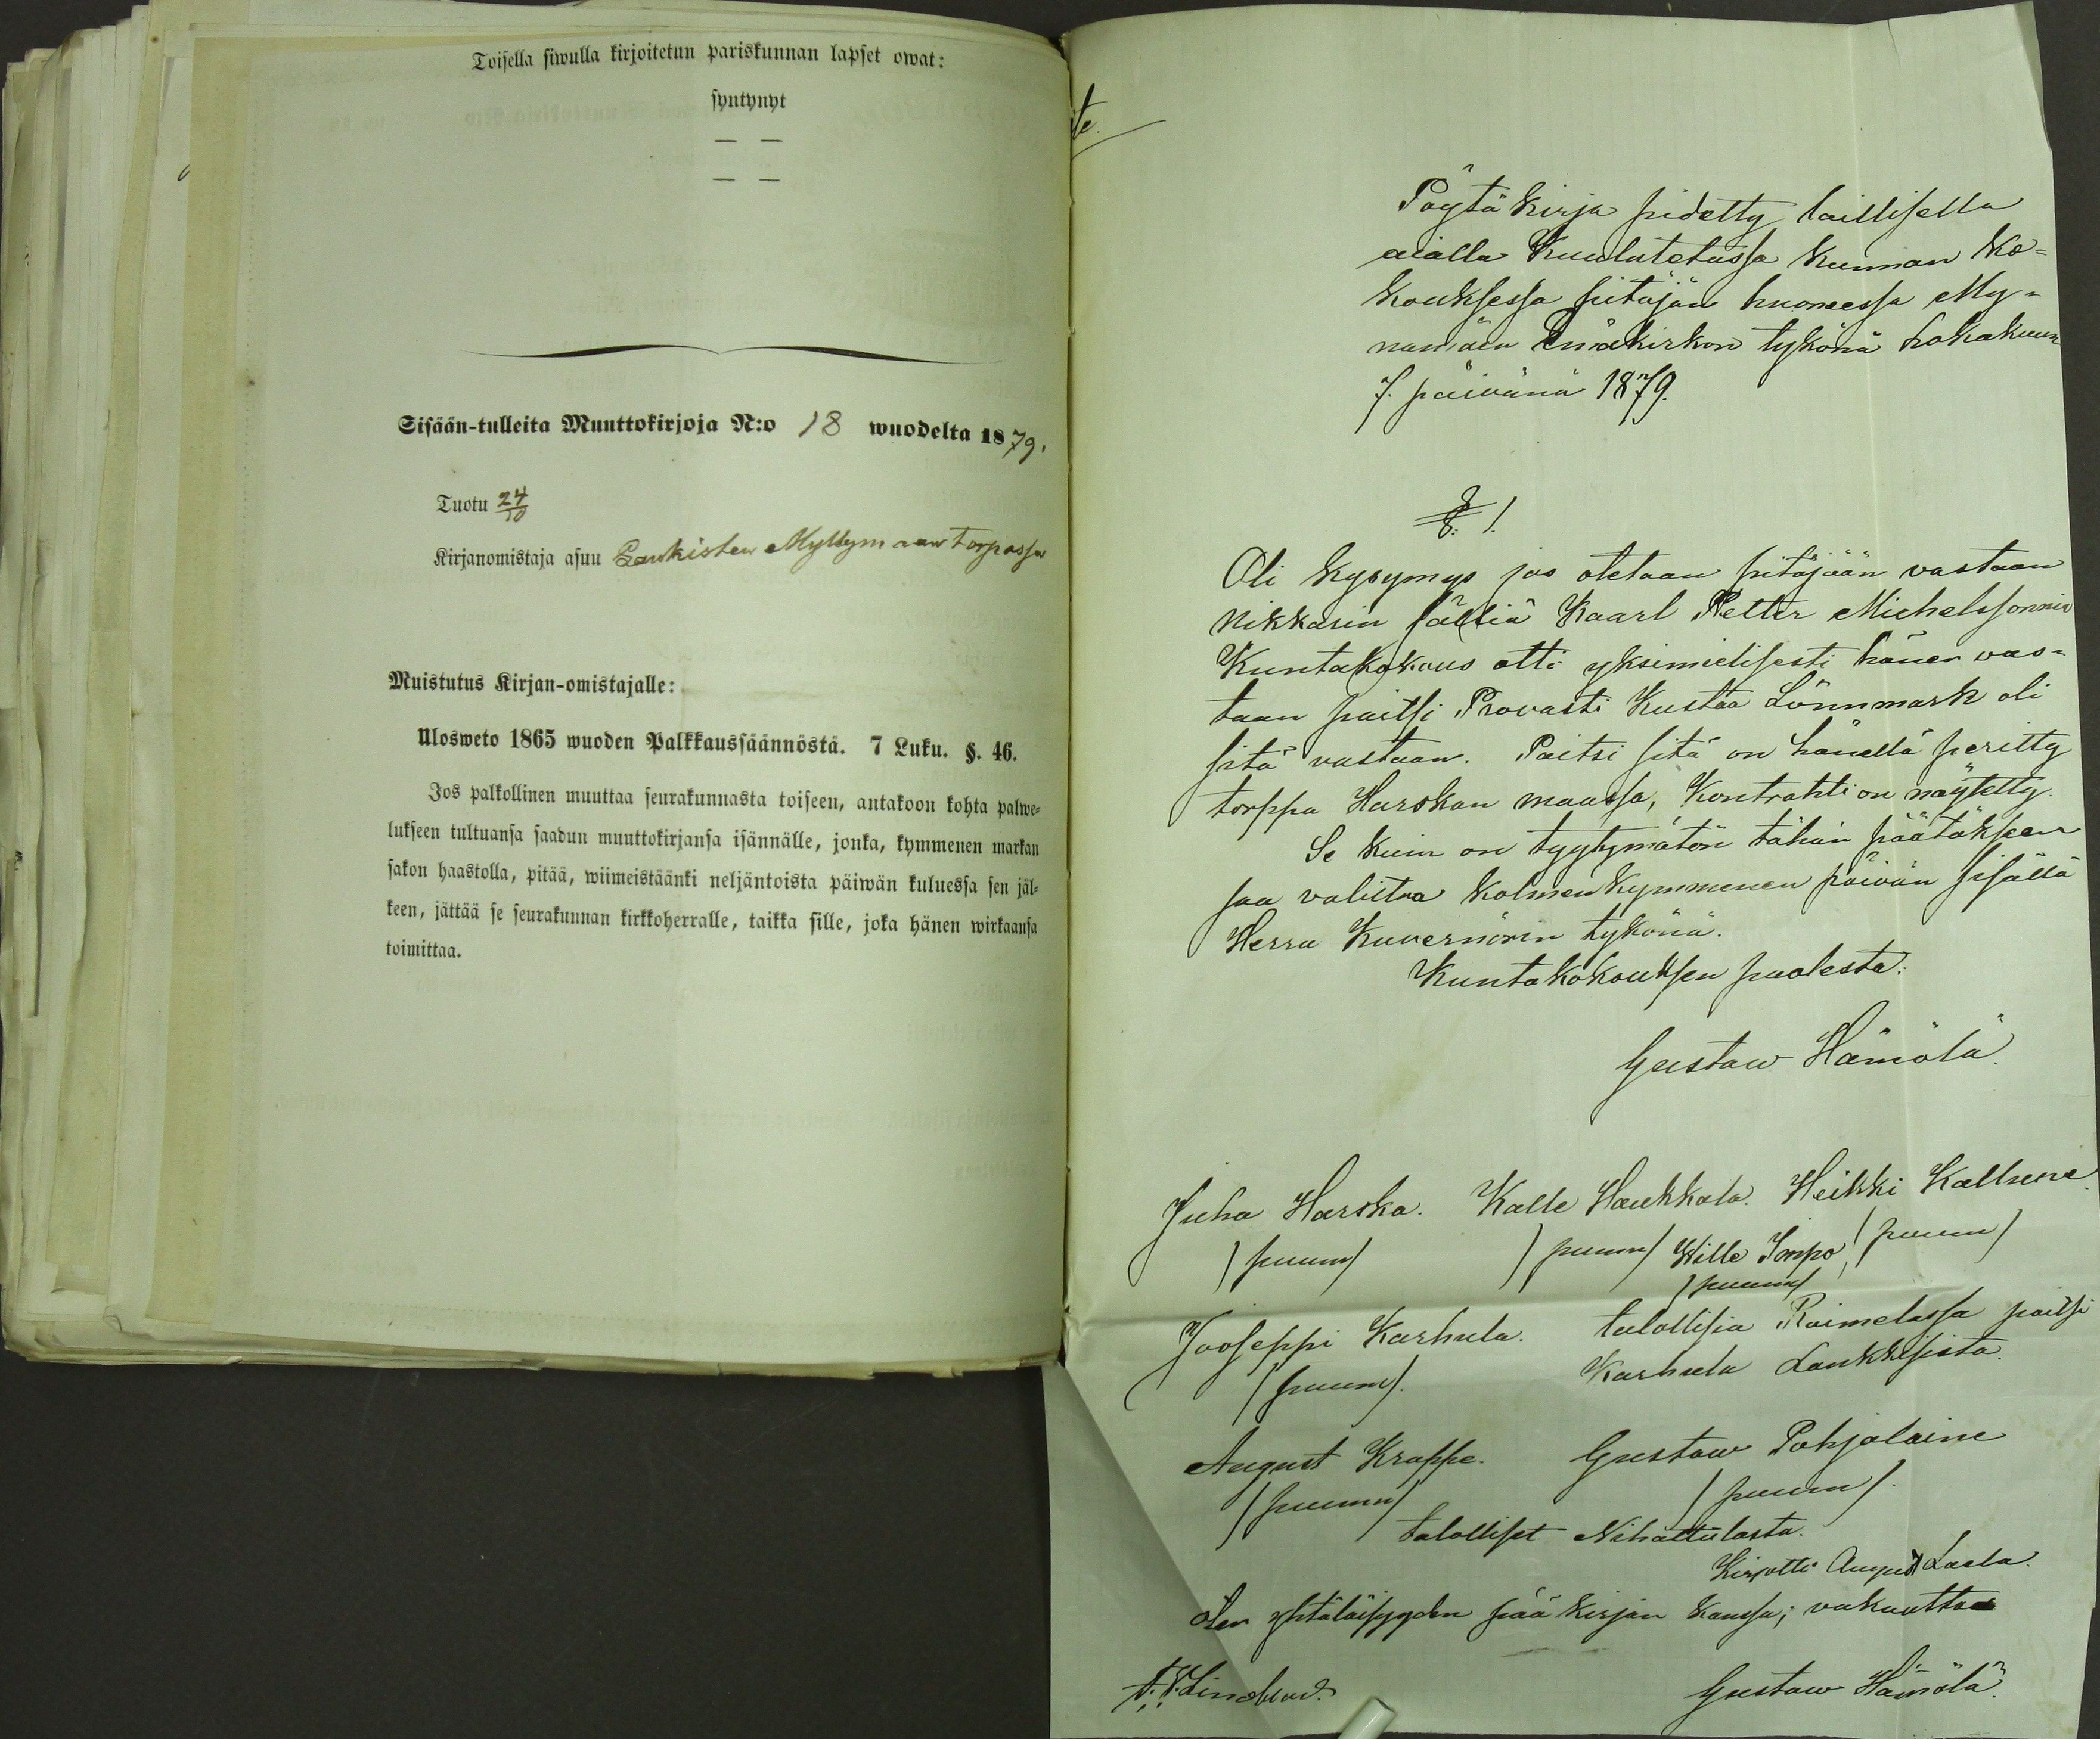 Toisella siwulla kirjoitetun pariskunnan lapset owat:
syntynyt
— —
— —
Sisään-tulleita Muuttokirjoja N:o 18 wuodelta 1879.
Tuotu 24/10
Kirjanomistaja asuu Lankisten Myllymaan torpassa
Muistutus Kirjan-omistajalle:
Ulosweto 1865 wuoden Palkkaussäännöstä. 7 Luku. §. 46.
Jos palkollinen muuttaa seurakunnasta toiseen, antakoon kohta palwe-
lukseen tultuansa saadun muuttokirjansa isännälle, jonka, kymmenen markan
sakon haastolla, pitää, wiimeistäänki neljäntoista päiwän kuluessa sen jäl-
keen, jättää se seurakunnan kirkkoherralle, taikka sille, joka hänen wirkaansa
toimittaa.
Pöytäkirja pidetty laillisella
aialla Kuulutetussa Kunnan Ko-
kouksessa pitäjän huoneessa My-
nämäen Emäkirkon tykönä Lokakuun
7. päivänä 1879.
§. 1.
Oli Kysymys jos otetaan pitäjään vastaan
Nikkarin sälliä Kaarl Petter Michelssonnin
Kuntakokous otti yksimielisesti hänen vas-
taan paitsi Provasti Kustaa Lönnmark oli
sitä vastaan. Paitsi sitä on hänellä peritty
torppa Harskan maassa, Kontrahti on näytetty.
Se Kuin on tyytymätön tähän päätökseen
saa valittaa Kolmenkymmenen päivän sisällä
Herra Kuvernörin tykönä.
Kuntakokouksen puolesta:
Gustaw Hämölä.
Juha Harska. Kalle Haukkala. Heikki
/puum/ /puum/ Wille Impo, /puum/
/puum/
Jooseppi Karhula. talollisia Raimelassa paitsi
/puum/. Karhula Lankkisista.
August Krappe. Gustaw Pohjolaine
/puumn/ /puum/.
talolliset Nihattulasta.
Kirjotti August Laela.
Sen yhtäläisyyden pää kirjan kanssa; vakuuttaa
Lindblad. Gustaw Hämölä.